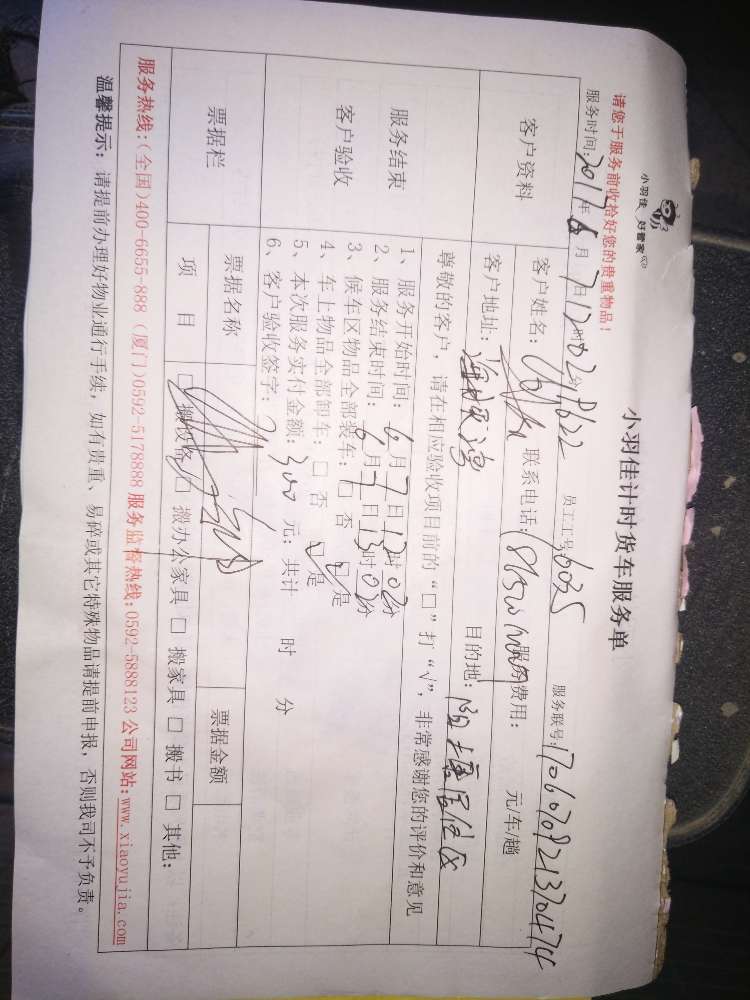 小羽佳 好管家
小羽佳计时货车服务单
请您于服务前收拾好您的贵重物品！
服务时间：2017年6月7日12时02分 员工工号：6035 服务联号：1706070921370474
客户资料
客户姓名： 联系电话： 服务费用： 元/车/趟
客户地址： 目的地：
尊敬的客户，请在相应验收项目前的“□”打“√”，非常感谢您的评价和意见
服务结束
客户验收
1、服务开始时间：6月7日12时02分
2、服务结束时间：6月7日13时02分
3、候车区物品全部装车：□否 ☑是
4、车上物品全部卸车：□否 ☑是
5、本次服务实付金额：300元；共计 时 分
6、客户验收签字：
票据栏
票据名称 票据金额
项目 □搬设备 □搬办公家具 □搬家具 □搬书 □其他：
服务热线：(全国)400-6655-888 (厦门)0592-5178888 服务监督热线：0592-5888123 公司网站：www.xiaoyujia.com
温馨提示：请提前办理好物业通行手续，如有贵重、易碎或其它特殊物品请提前申报，否则我司不予负责。